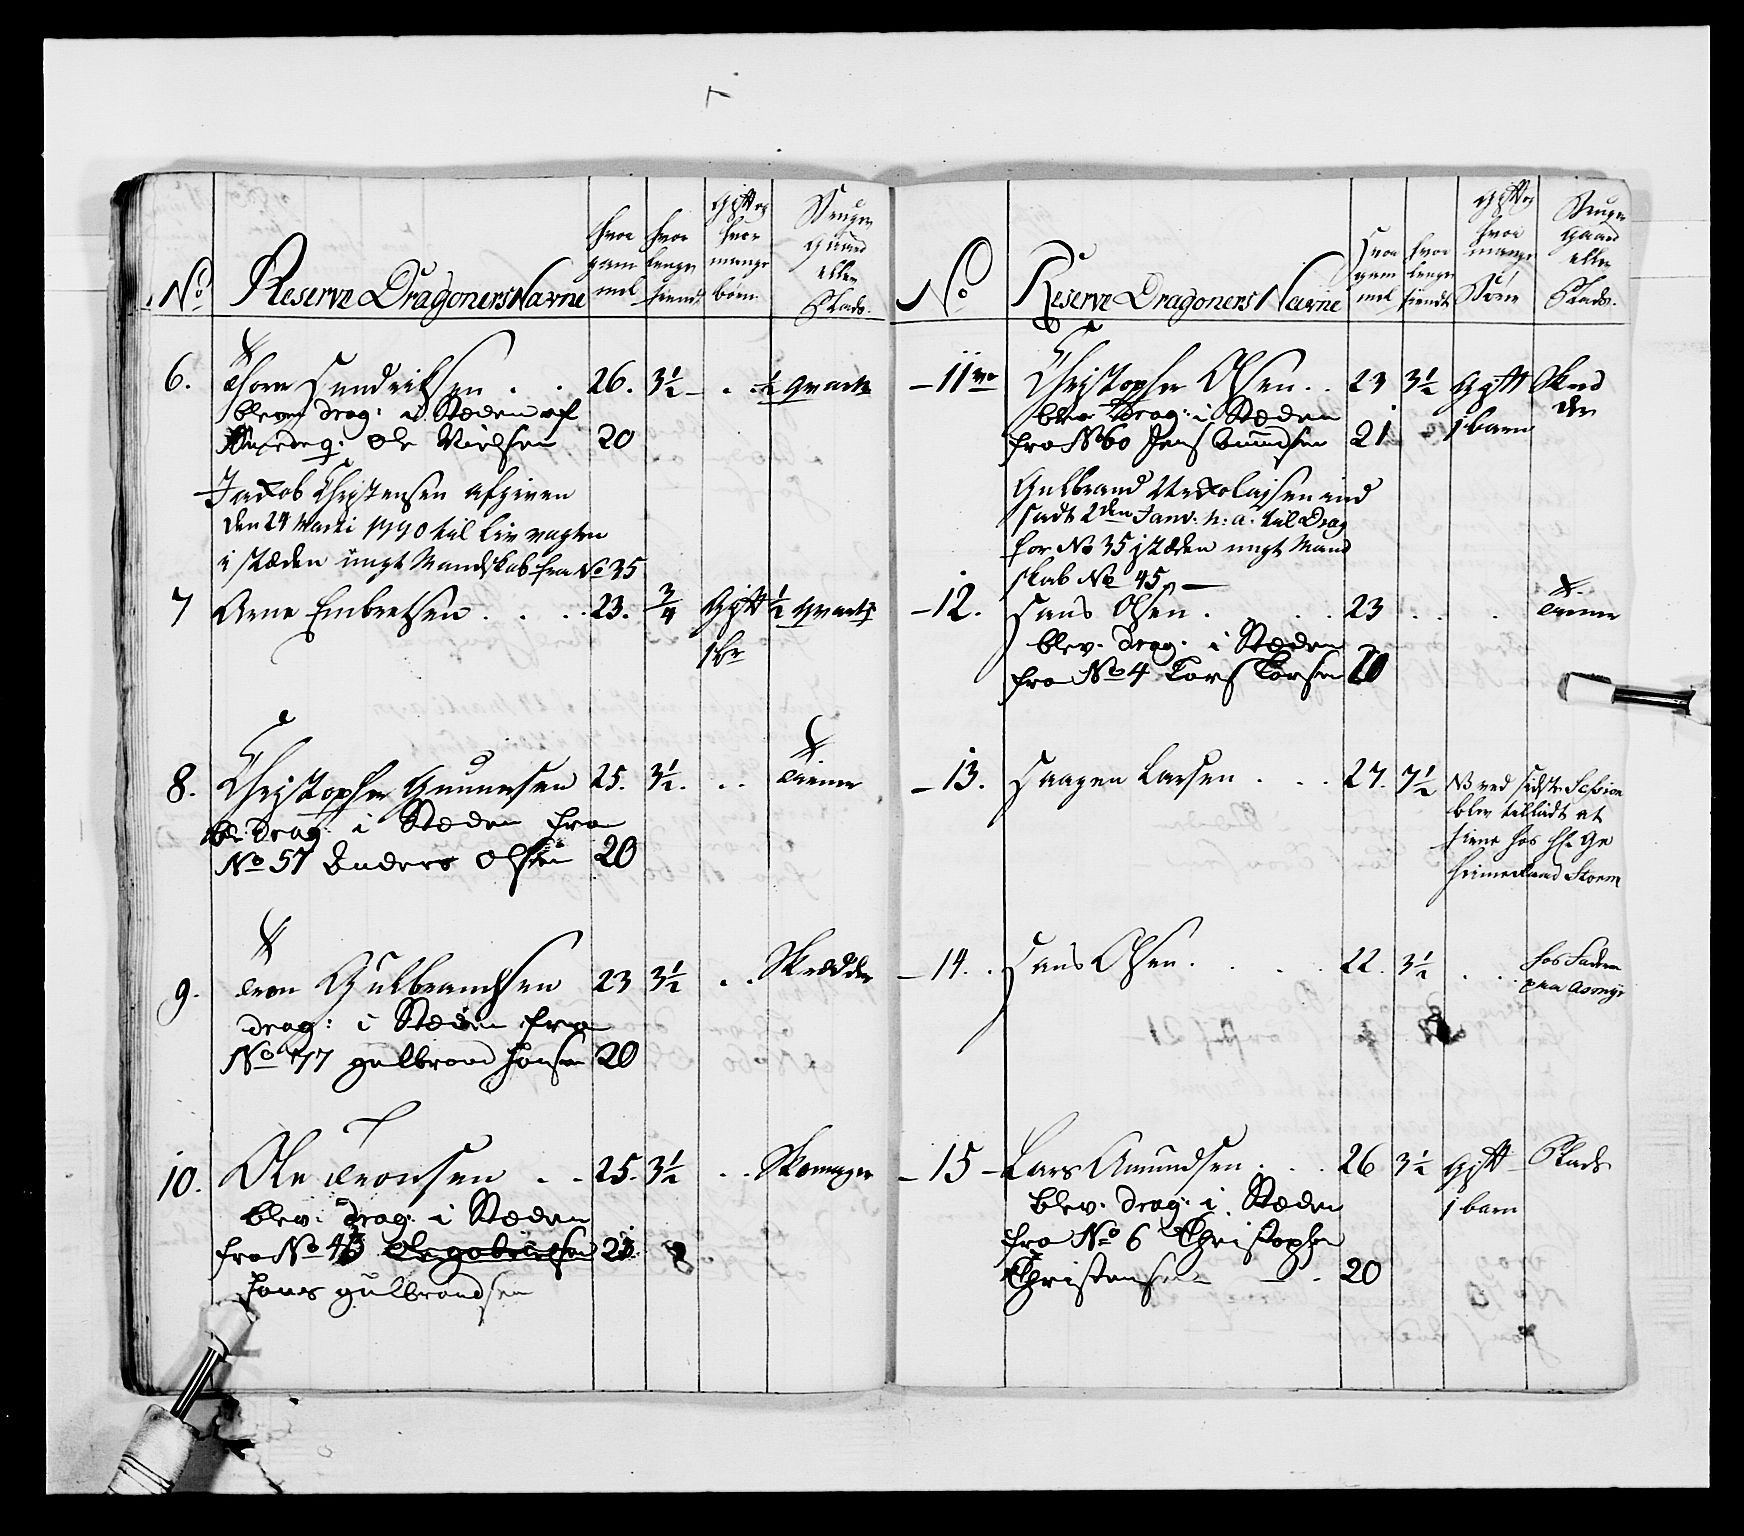 No
Reserve Dragoners Navne
hvor gam mel
hvor lenge tient
Gift og hvor mange børn
Bruger Gaard eller Plads.
6. Thore Hendriksen . . 26. 3½ - . ½ Qvarte
blev drag: i Stæden af
Ole Nielsen 20
Jackob Christensen afgiven
den 24 Marti 1790 til Liv vagten
i stæden ungt Mandskab fra No 35
7 Arne Embretsen . . . 23. 3/4 Gift ½ Qvarte
1 br
8. Christopher Gunnersen 25. 3½. . . Tiener
bl: Drag: i Stæden fra
No 57 Anders Olsen 20
9. Tron Gulbrandsen 23 3½ . . Skrædder
drag: i Stæden fra
No 77 gulbrand Hansen 20
10. Ole Tronsen . . 25. 3½ . . Skomager
blev: drag: i Stæden
fra No 43 21
Hans gulbrandsen
No
Reserve Dragoners Navne
Hvor gam mel
hvor lenge tiendt
Gift og hvor mange Børn
Bruger Gaard eller Plads.
11 Christopher Olsen . . 23 3½ Gift
blev Drag: i Stæden
fra No 60 Jens 21 1 barn
Gulbrand Nickolajsen ind
sadt 2den Janv: h: a: til Drag
for No 35 i stæden ungt Mand
skab No 45
12. Hans Olsen . . . 23 . . . Tiener
blev. drag: i Stæden
fra No 4 Lars Larsen 20
13. Haagen Larsen . . . 27. 7½ ved sidste Session
blev tilladt at
tiene hos Hr Ge
heimeraad Storm
14. Hans Olsen . . . . 22. 3½ . . hos Faderen
paa
15 Lars Amundsen . . . 26 3½ Gift Plads
blev. drag: i Stæden 1 barn
fra No 6 Christopher
Christensen - . 20